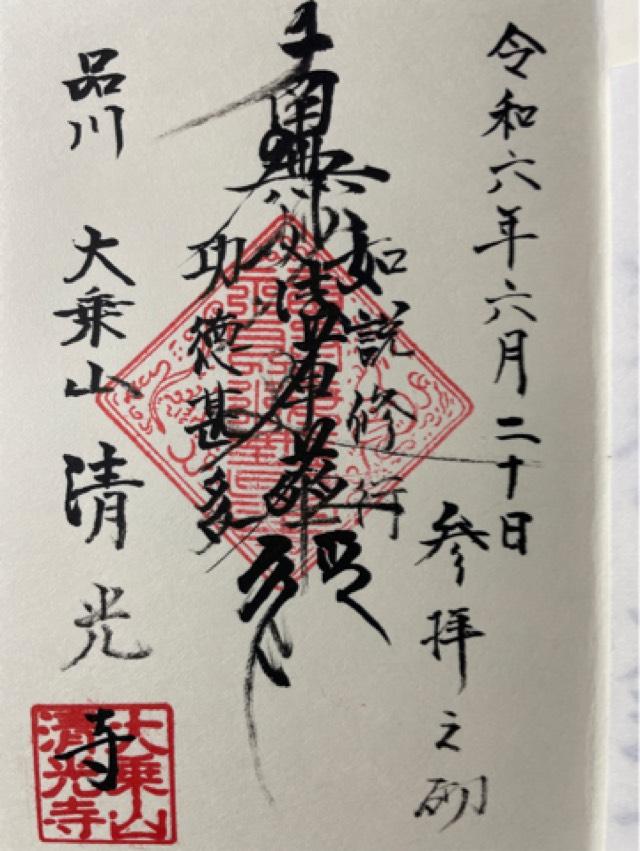 令和六年六月二十日
参拝之砌
如説修行
南無妙法蓮華経
功徳甚多
品川 大乗山 清光寺
大乗山
清光寺